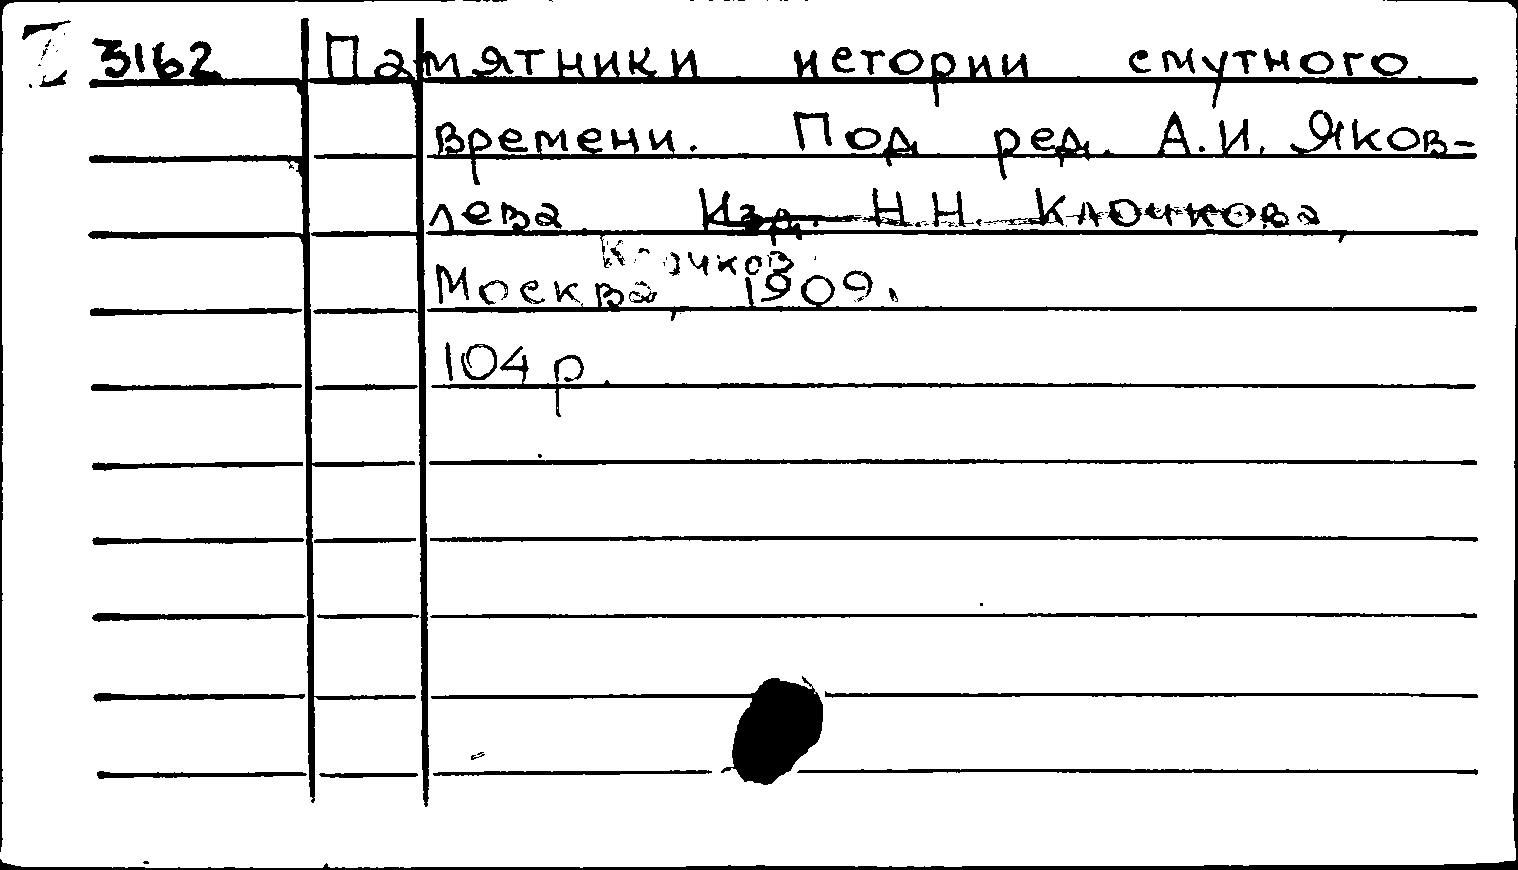 Z 3162 Памятники истории смутного
времени. Под ред. А.И. Яков-
лева. Изд. Н.Н. Клочкова,
Клочков
Москва, 1909.
104 p.